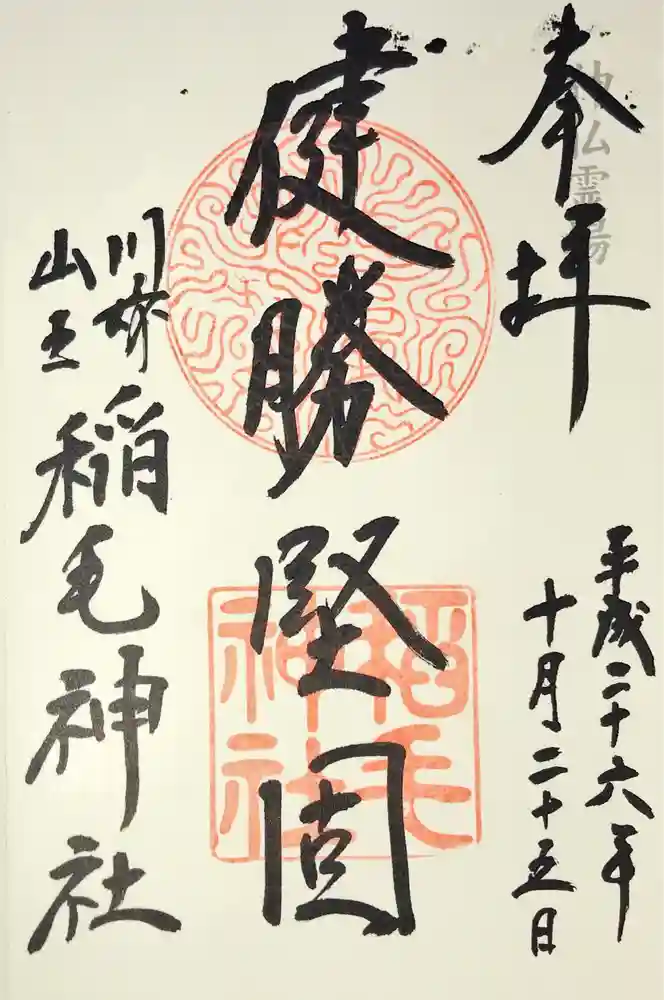 奉拝
神仏霊場
平成二十六年
十月二十五日
健勝堅固
稲毛
神社
川崎
山王
稲毛神社